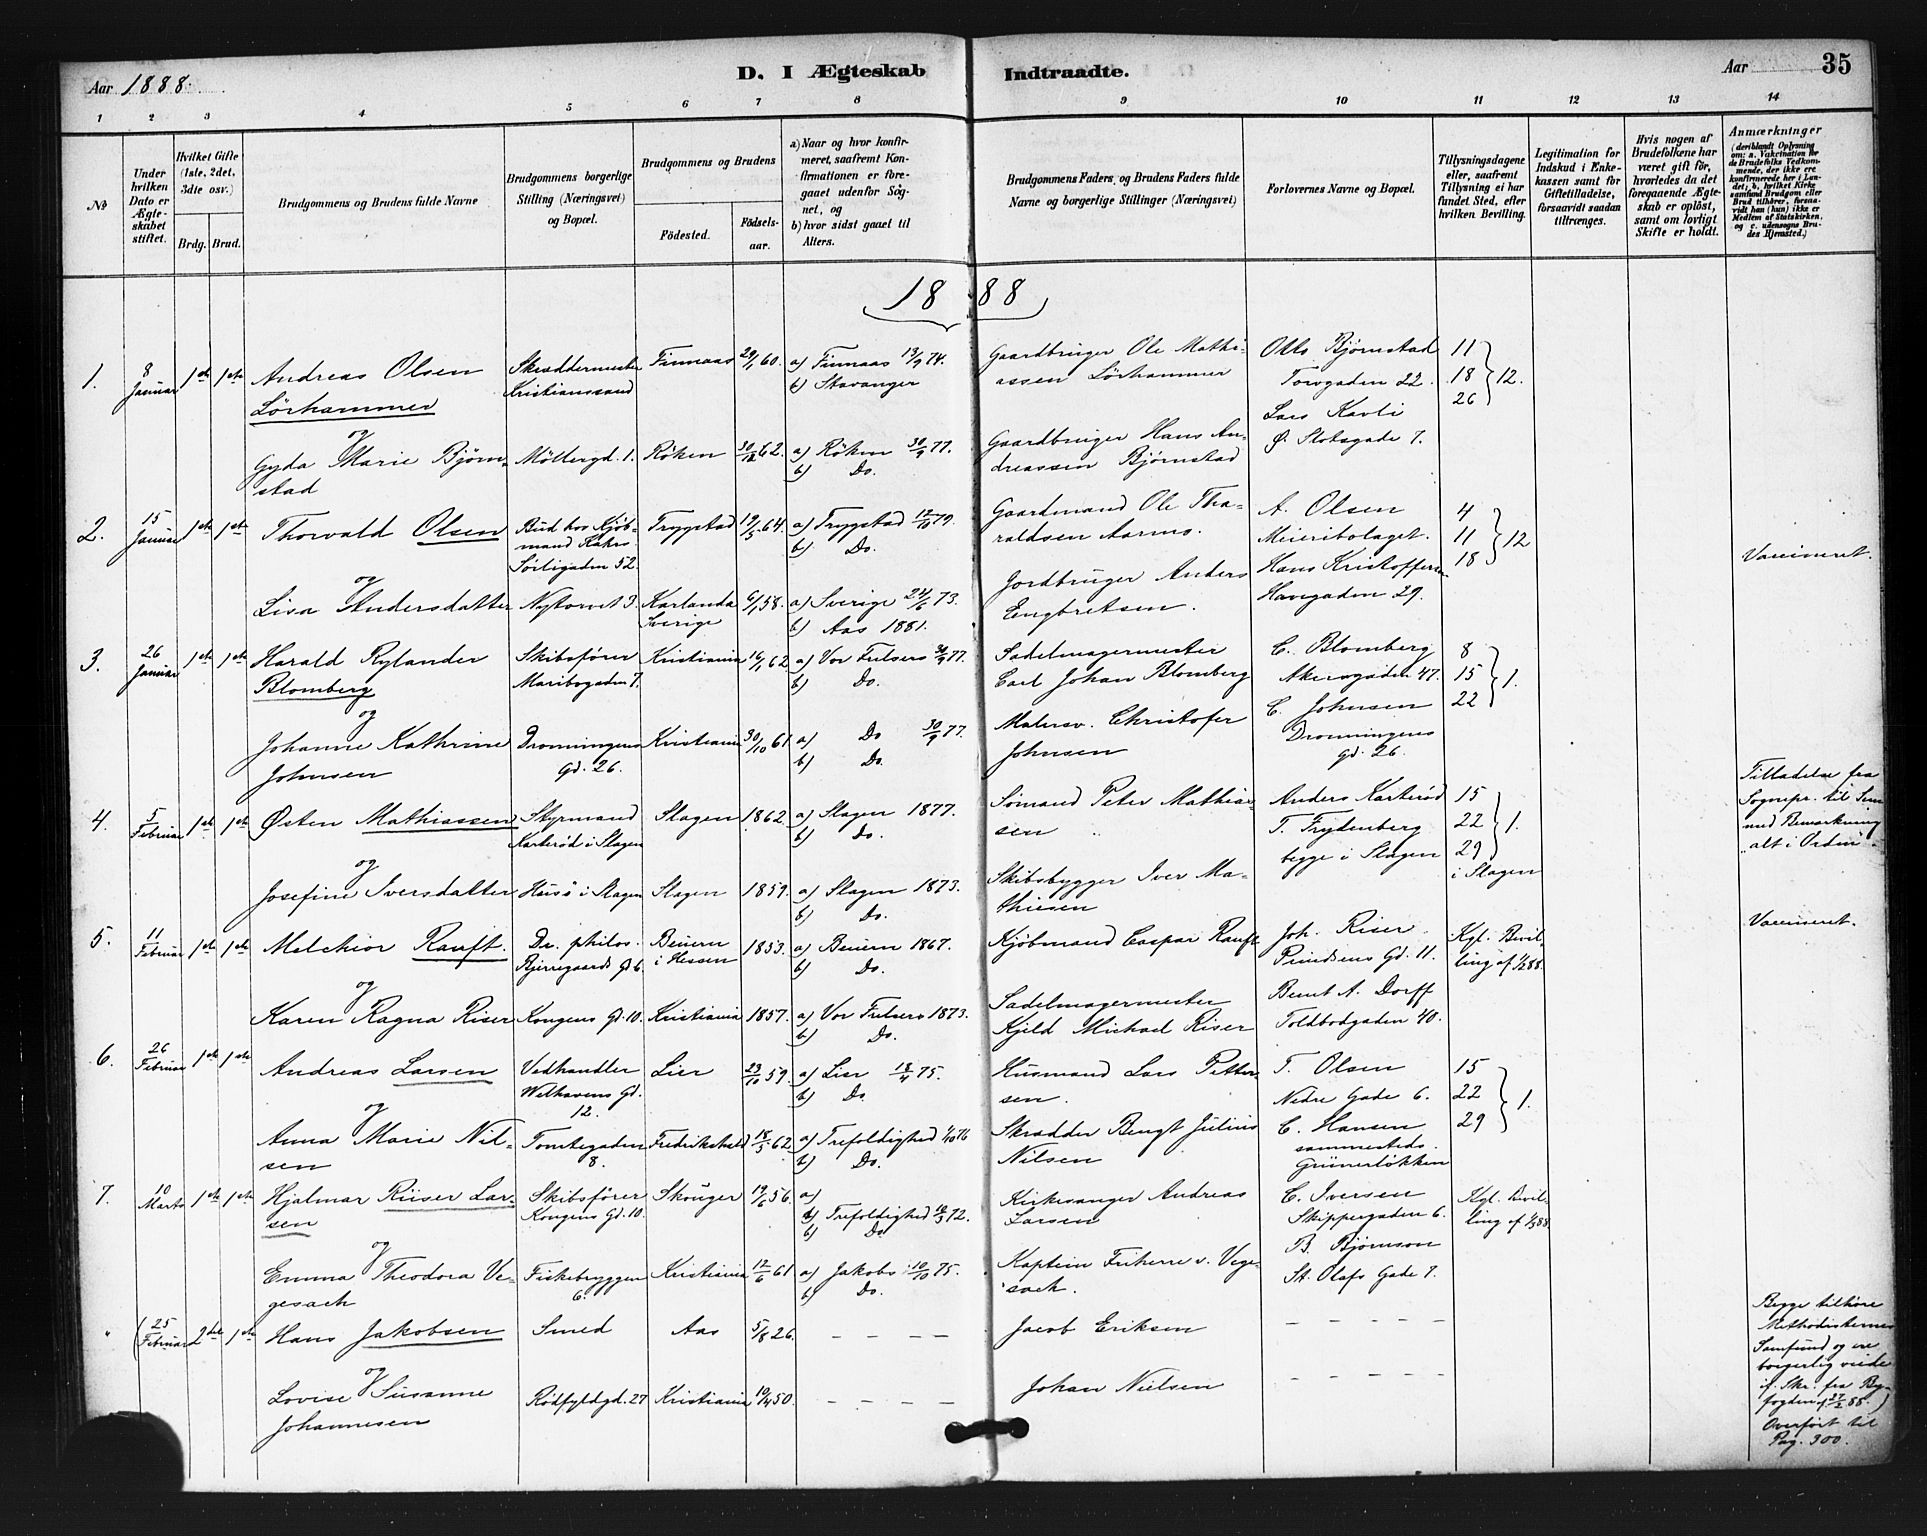 Aar 1888.
D. I Ægteskab Indtraadte.
Aar 35
1 2 3 4 5 6 7 8 9 10 11 12 13 14
No
Under hvilken Dato er Ægteskabet stiftet.
Hvilket Gifte (1ste, 2det, 3die osv.)
Brdg. Brud.
Brudgommens og Brudens fulde Navne
Brudgommens borgerlige Stilling (Næringsvei) og Bopæl.
Brudgommens og Brudens
Fødested.
Fødselsaar.
a) Naar og hvor konfirmeret, saafremt Konfirmationen er foregaaet udenfor Sognet, og
b) hvor sidst gaaet til Alters.
Brudgommens Faders, og Brudens Faders fulde Navne og borgerlige Stillinger (Næringsvei)
Forlovernes Navne og Bopæl.
Tillysningsdagene eller, saafremt Tillysning ei har fundet Sted, efter hvilken Bevilling.
Legitimation for Indskud i Enkekassen samt for Giftetilladelse, forsaavidt saadan tiltrænges.
Hvis nogen af Brudefolkene har været gift før, hvorledes da det foregaaende Ægteskab er opløst, samt om lovligt Skifte er holdt.
Anmærkninger
(deriblandt Oplysning om: a. Vakcination for de Brudefolks Vedkommende, der ikke ere konfirmerede her i Landet; b. hvilket Kirkesamfund Brudgom eller Brud tilhører, forsaavidt han (hun) ikke er Medlem af Statskirken, og c. udensogns Brudes Hjemsted.)
1888
1. 8 Januar 1ste 1ste Andreas Olsen Lörhammer
Skræddermester Kristianssand
Finnaas 29/1 60.
a) Finnaas 13/9 74.
b) Stavanger
Gaardbruger Ole Mathiassen Lörhammer
Otto Bjørnstad Torvgaden 22.
11 18 26 } 12.
og
Gyda Marie Bjørnstad
Möllergd. 1.
Röken 30/12 62.
a) Röken 30/9 77.
b) Do.
Gaardbruger Hans Andreassen Bjørnstad
Lars Kavli Ø. Slotsgade 7.
2. 15 Januar 1ste 1ste Thorvald Olsen
Bud hos Kjöbmand Sörligaden 52.
Trygstad 19/5 64.
a) Trygstad 12/10 79.
b) Do.
Gaardmand Ole Tharaldsen Aarmo.
A. Olsen Meieribolaget.
4 11 18 } 12
Vaccineret.
og
Lisa Andersdatter
Nytorvet 3.
Karlanda Sverige 6/1 58.
a) Sverige 24/6 73.
b) Aas 1881.
Jordbruger Anders Engbretsen.
Hans Kristoffersen Havegaden 29.
3. 26 Januar 1ste 1ste Harald Rylander Blomberg
Skibsfører Maribogaden 7.
Kristiania 16/1 62
a) Vor Frelsers 30/9 77.
b) Do.
Sadelmagermester Carl Johan Blomberg
C. Blomberg Akersgaden 47.
8 15 22 } 1.
og
Johanne Kathrine Johnsen
Dronningens Gd. 26.
Kristiania 30/10 61
a) Do 30/9 77.
b) Do.
Malersv. Christofer Johnsen
C. Johnsen Dronningens gd. 26.
4. 5 Februar 1ste 1ste Østen Mathiassen
Styrmand Karterød i Slagen
Slagen 1862
a) Slagen 1877.
b) Do.
Sömand Peter Mathiassen
Anders Karterød
T. Frydenberg
begge i Slagen
15 22 29 } 1. i Slagen
Tilladelse fra Sognepr. til Sem med Bemærkning "alt i Orden".
og
Josefine Iversdatter
Husö i Slagen
Slagen 1859.
a) Slagen 1873.
b) Do.
Skibsbygger Iver Mathiesen
5. 11 Februar 1ste 1ste Melchior Rauft.
Dr. philos. Bjerregaards Gd 6.
Beuern i Hessen 1853.
a) Beuern 1867.
b) Do.
Kjöbmand Caspar Rauft
Joh. Riser Prindsens Gd. 11.
Kgl. Bevilling af 1/2 88.
Vaccineret.
og
Karen Ragna Riser
Kongens Gd. 10.
Kristiania 1857.
a) Vor Frelsers 1873.
b) Do.
Sadelmagermester Kjeld Michael Riser
Bernt A. Dorff Toldbodgaden 40.
6. 26 Februar 1ste 1ste Andreas Larsen
Vedhandler Welhavens Gd. 12.
Lier 23/10 59.
a) Lier 18/4 75.
b) Do.
Husmand Lars Pettersen.
T. Olsen Nedre Gade 6.
15 22 29 } 1.
og
Anna Marie Nilsen
Tomtegaden 8.
Fredrikshald 18/5 62
a) Trefoldighed 1/10 76
b) Do.
Skrædder Bengt Julius Nilsen
C. Hansen sammesteds Grünerløkken
7. 10 Marts 1ste 1ste Hjalmar Riiser Larsen
Skibsfører Kongens Gd. 10.
Skouger 19/6 56.
a)
b) Trefoldighed 10/3 72.
b) Do
Kirkesanger Andreas Larsen
C. Iversen Skippergaden 6.
Kgl. Bevilling af 1/3 88.
og
Emma Theodora Vegesach
Fiskebryggen 6.
Kristiania 12/6 61
a) Jakobs 10/10 75.
b) Do.
Kaptein Friherre v. Vegesack.
B. Bjørnson St. Olafs Gade 7.
" (25 Februar 2det 1ste Hans Jakobsen
Smed
Aas 5/8 26.
Jacob Eriksen
Begge tilhöre Methodisternes Samfund og ere borgerlig viede if. Skr. fra Byfogden af 27/2 88.) Overført til Pag. 300.
og
Lovise Susanne Johannesen
Rødfyldgd. 27
Kristiania 10/4 50.
Johan Nielsen